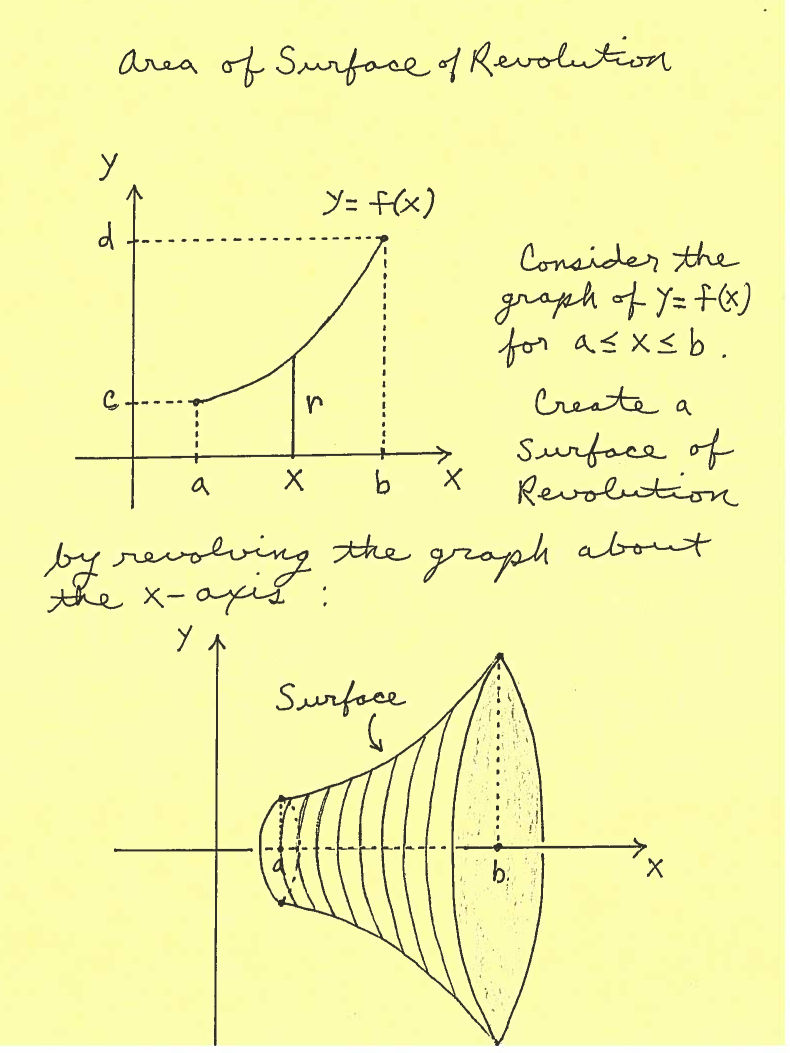 Area of Surface of Revolution
y
y = f(x)
d
Consider the
graph of y = f(x)
for a ≤ x ≤ b .
c
r
Create a
Surface of
Revolution
a
x
b
x
by revolving the graph about
the x-axis :
y
Surface
a
b
x